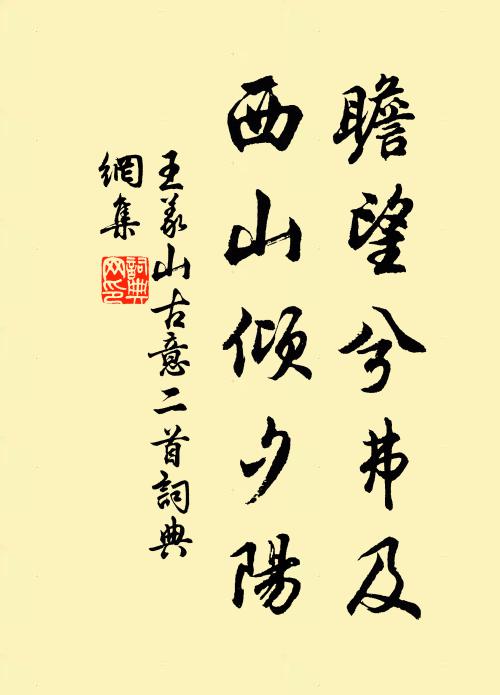 瞻望兮弗及
西山傾夕陽
王義山古意二首詞典
網集
詞典
网印